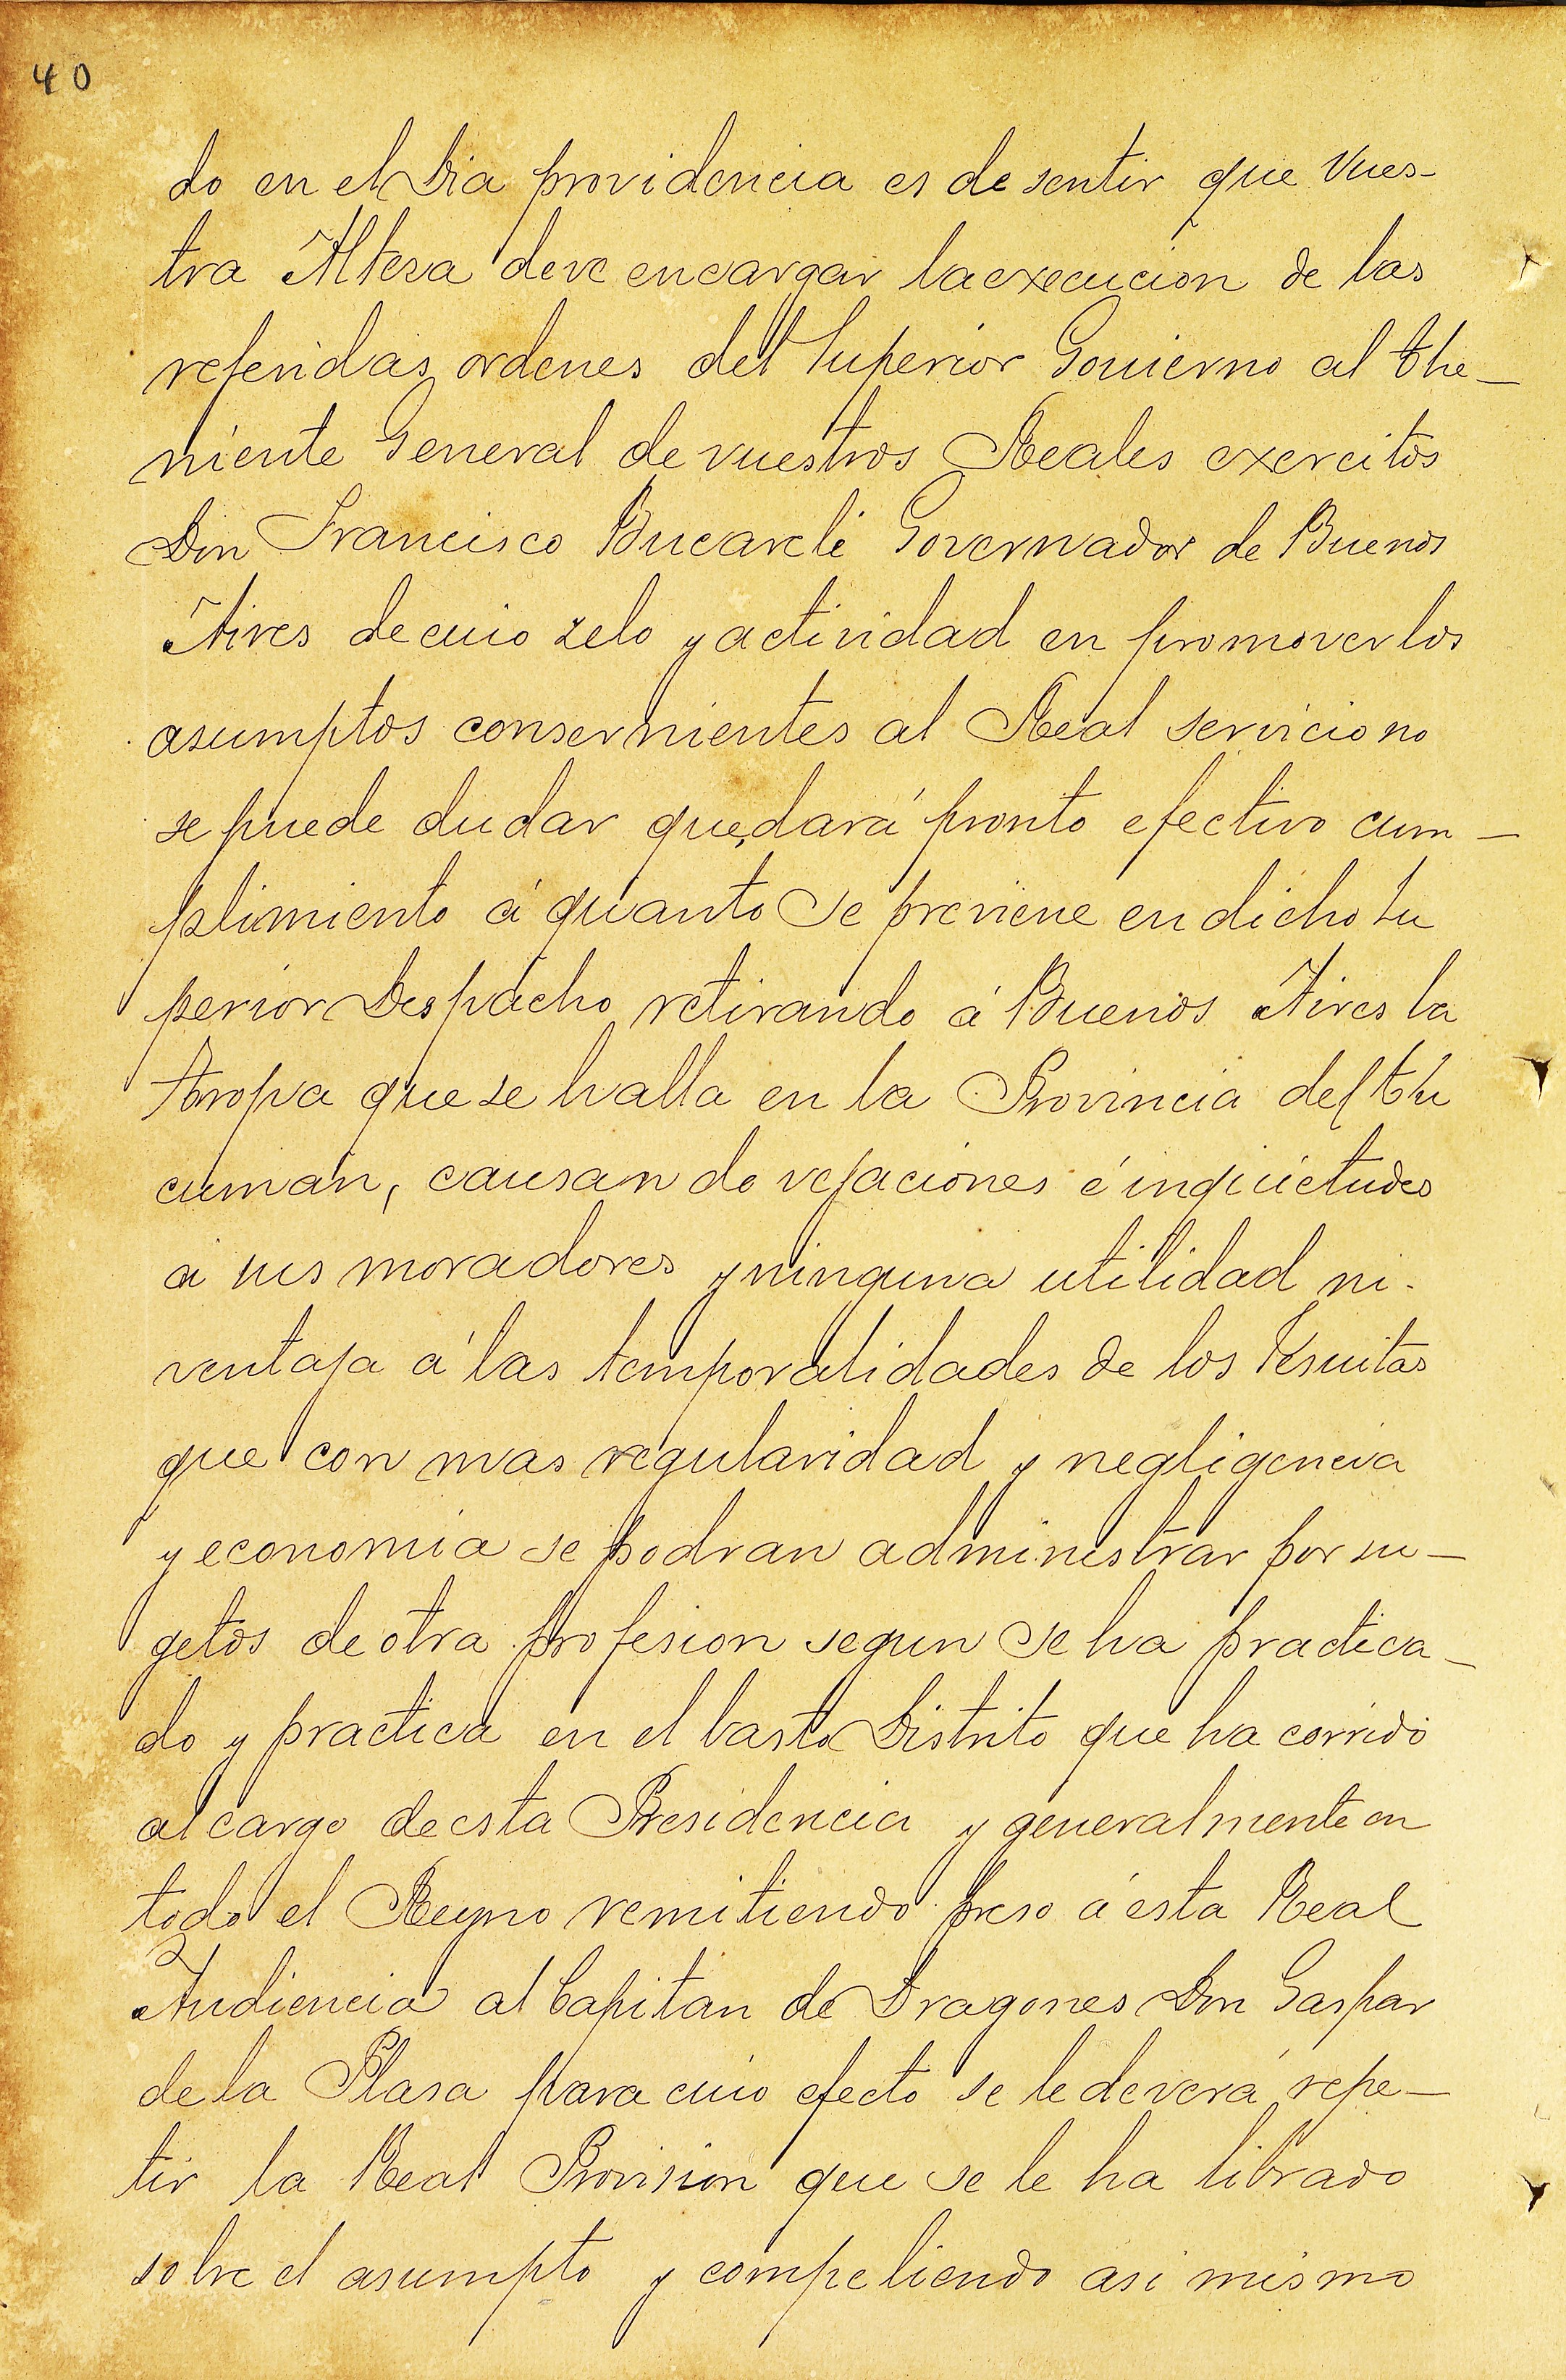 40
do en el Dia providencia es de sentir que Vues-
tra Altesa deve encargar la execucion de las
referidas ordenes del Superior Govierno al The-
niente General de vuestros Reales exercitos
Don Francisco Bucareli Governador de Buenos
Aires de cuio zelo y actividad en promover los
asumptos consernientes al Real servicio no
se puede dudar que, dará pronto efectivo cum-
plimiento á quanto se previene en dicho Su
perior Despacho retirando á Buenos Aires la
tropa que se halla en la Provincia del Thu
cuman, causando vejaciones é inquietudes
á sus moradores y ninguna utilidad ni.
ventaja á las temporalidades de los Jesuitas
que con mas regularidad y negligencia
y economia se podran administrar por su-
getos de otra profesion segun se ha practica-
do y practica en el basto Distrito que ha corrido
al cargo de esta Presidencia y generalmente en
todo el Reyno remitiendo preso á esta Real
Audiencia al Capitan de Dragones Don Gaspar
de la Plasa para cuio efecto se le deverá repe-
tir la Real Provision que se le ha librado
sobre el asumpto y compeliendo asi mismo